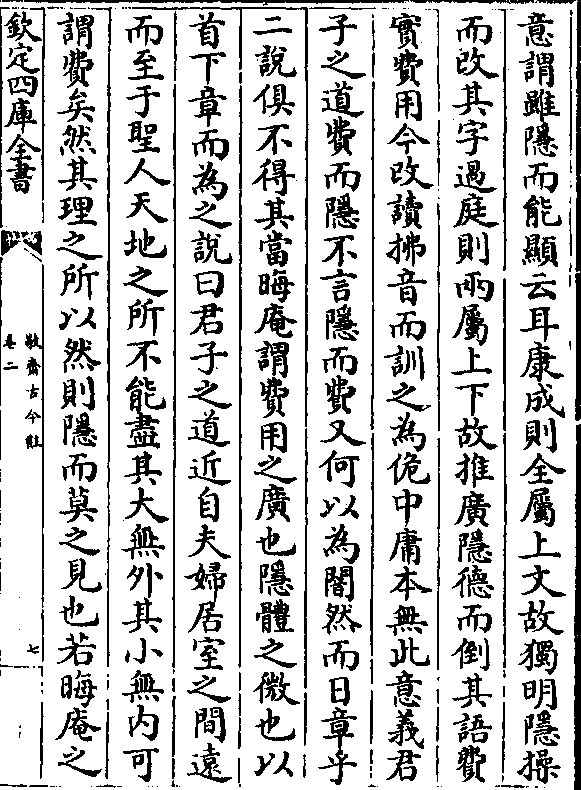 意謂雖隠而能顯云耳康成則全屬上文故獨明隠操
而改其字過庭則兩屬上下故推廣隠德而倒其語費
實費用今改讀拂音而訓之為佹中庸本無此意義君
子之道費而隠不言隠而費又何以為闇然而日章乎
二說俱不得其當晦庵謂費用之廣也隠體之微也以
首下章而為之說曰君子之道近自夫婦居室之間遠
而至于聖人天地之所不能盡其大無外其小無内可
謂費矣然其理之所以然則隠而莫之見也若晦庵之
欽定四庫全書
敬齋古今黈
卷二
七